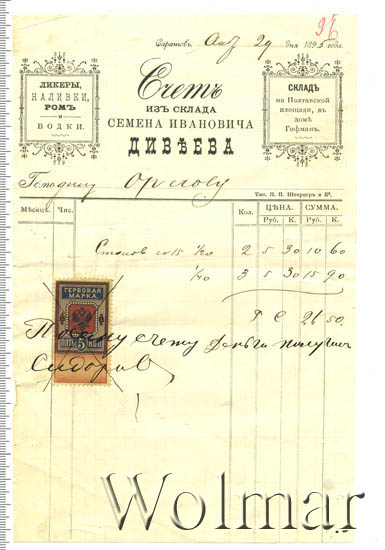 96
Саратов, Авг 29 дня 1895 года.
ЛИКЕРЫ,
НАЛИВКИ,
РОМЪ
И
ВОДКИ.
Счетъ
ИЗЪ СКЛАДА
СЕМЕНА ИВАНОВИЧА
ДИВѢЕВА
СКЛАДЪ
на Полтавской
площади, въ
домѣ
Гофманъ.
Господину Орлову
Тип. Н. П. Штерцеръ и Кº.
Мѣсяцъ. Чис. Кол. ЦѢНА. СУММА.
Руб. К. Руб. К.
1/20 2 5 30 10 60
1/40 3 5 30 15 90
26 50
ГЕРБОВАЯ
МАРКА.
5
ПЯТЬ КОП
По сему счету деньги получилъ
Сидоровъ
Wolmar